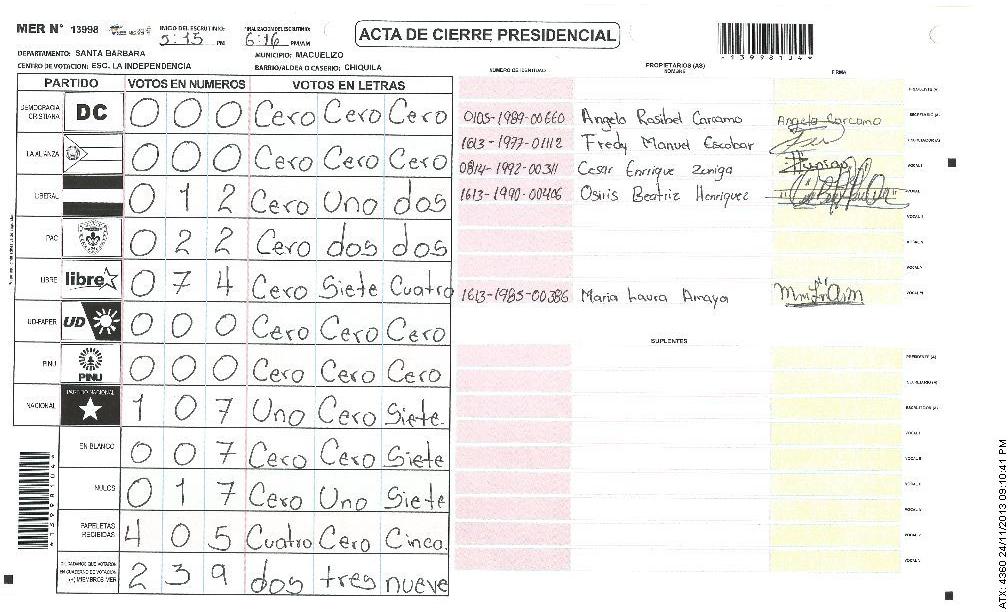 MER N° 13998 INICIO DEL ESCRUTINIO: 5:15 PM FINALIZACION DEL ESCRUTINIO: 6:16 PM/AM
ACTA DE CIERRE PRESIDENCIAL
DEPARTAMENTO: SANTA BARBARA MUNICIPIO: MACUELIZO
CENTRO DE VOTACION: ESC. LA INDEPENDENCIA BARRIO/ALDEA O CASERIO: CHIQUILA
PARTIDO VOTOS EN NUMEROS VOTOS EN LETRAS
DEMOCRACIA CRISTIANA DC 0 0 0 Cero Cero Cero
LA ALIANZA 0 0 0 Cero Cero Cero
LIBERAL 0 1 2 Cero Uno dos
PAC 0 2 2 Cero dos dos
LIBRE libre 0 7 4 Cero Siete Cuatro
UD-FAPER UD 0 0 0 Cero Cero Cero
PINU PINU 0 0 0 Cero Cero Cero
NACIONAL PARTIDO NACIONAL 1 0 7 Uno Cero Siete.
EN BLANCO 0 0 7 Cero Cero Siete
NULOS 0 1 7 Cero Uno Siete
PAPELETAS RECIBIDAS 4 0 5 Cuatro Cero Cinco.
CIUDADANOS QUE VOTARON EN CUADERNO DE VOTACION (+) MIEMBROS MER 2 3 9 dos tres nueve
NUMERO DE IDENTIDAD PROPIETARIOS (AS) NOMBRE FIRMA
0105-1989-00660 Angela Rosibel Carcamo Angela Carcamo SECRETARIO (A)
1613-1977-01112 Fredy Manuel Escobar
0814-1992-00311 Cesar Enrique Zuniga VOCAL I
1613-1990-00406 Osiris Beatriz Henriquez
1613-1985-00386 Maria Laura Amaya
SUPLENTES
PRESIDENTE (A)
SECRETARIO (A)
ESCRUTADOR (A)
VOCAL I
ATX: 4360 24/11/2013 09:10:41 PM